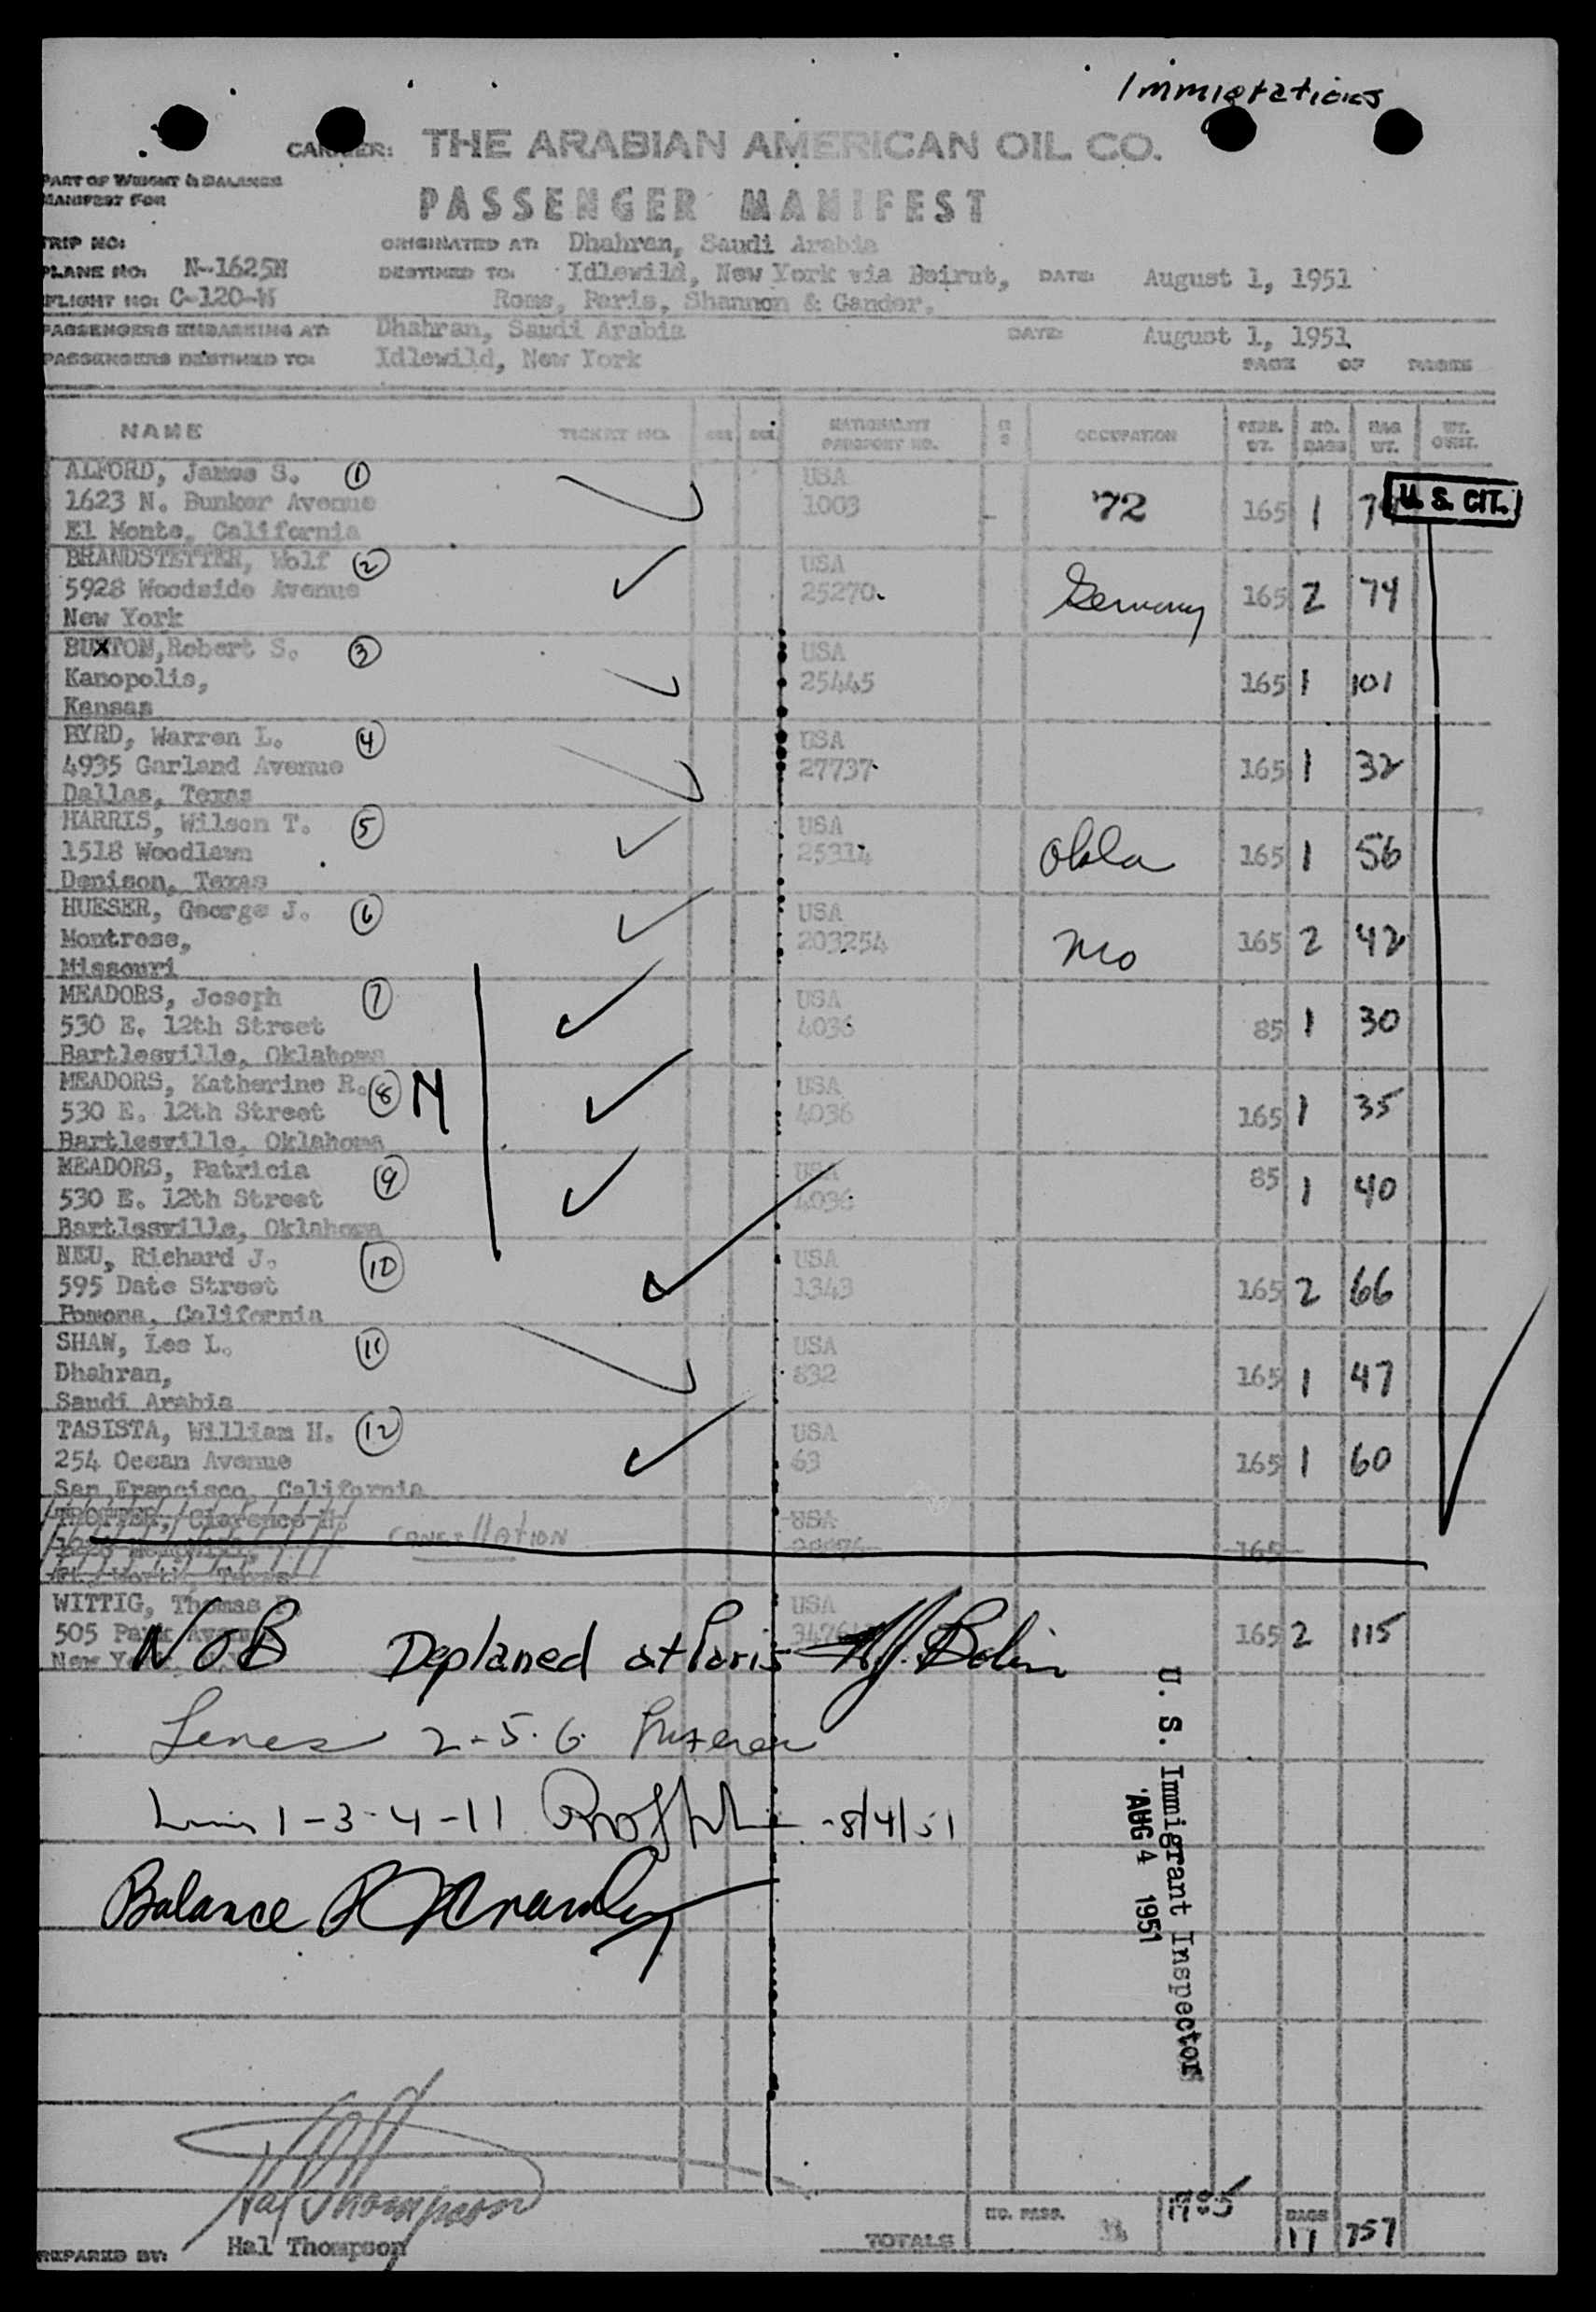 Immigrations
CARRIER: THE ARABIAN AMERICAN OIL CO.
PART OF WEIGHT & BALANCE
MANIFEST FOR
PASSENGER MANIFEST
TRIP NO: ORIGINATED AT: Dhahran, Saudi Arabia
PLANE NO: N-1625N DESTINED TO: Idlewild, New York via Beirut, DATE: August 1, 1951
FLIGHT NO: C-120-W Rome, Paris, Shannon & Gander.
PASSENGERS EMBARKING AT: Dhahran, Saudi Arabia DATE: August 1, 1951
PASSENGERS DESTINED TO: Idlewild, New York PAGE OF PAGES
NAME TICKET NO. SEX NATIONALITY PASSPORT NO. OCCUPATION PERS. WT. NO. BAGS BAG WT.
ALFORD, James S. 1 USA
1623 N. Bunker Avenue 1003 - '72 165 1 U. S. CIT.
El Monte, California
BRANDSTETTER, Wolf 2 USA
5928 Woodside Avenue 25270 Germany 165 2 74
New York
BUXTON, Robert S. 3 USA
Kanopolis, 25445 165 1 101
Kansas
BYRD, Warren L. 4 USA
4935 Garland Avenue 27737 165 1 32
Dallas, Texas
HARRIS, Wilson T. 5 USA
1518 Woodlawn 25314 Okla 165 1 56
Denison, Texas
HUESER, George J. 6 USA
Montrose, 203254 Mo 165 2 42
Missouri
MEADORS, Joseph 7 USA
530 E. 12th Street 4036 85 1 30
Bartlesville, Oklahoma
MEADORS, Katherine R. 8 N USA
530 E. 12th Street 4036 165 1 35
Bartlesville, Oklahoma
MEADORS, Patricia 9 USA 85
530 E. 12th Street 4036 1 40
Bartlesville, Oklahoma
NEU, Richard J. 10 USA
595 Date Street 1343 165 2 66
Pomona, California
SHAW, Les L. 11 USA
Dhahran, 832 165 1 47
Saudi Arabia
TASISTA, William H. 12 USA
254 Ocean Avenue 63 165 1 60
San Francisco, California
Clarence H. USA
CANCELLATION 165
Ft. Worth, Texas
WITTIG, Thomas USA
505 Park Avenue 165 2 115
New York
NOB Deplaned at Paris
Lines 2-5-6
Lines 1-3-4-11 -8/4/51
Balance
U. S. Immigrant Inspector
AUG 4 1951
Hal Thompson
PREPARED BY: Hal Thompson
TOTALS NO. PASS. BAGS 17 757